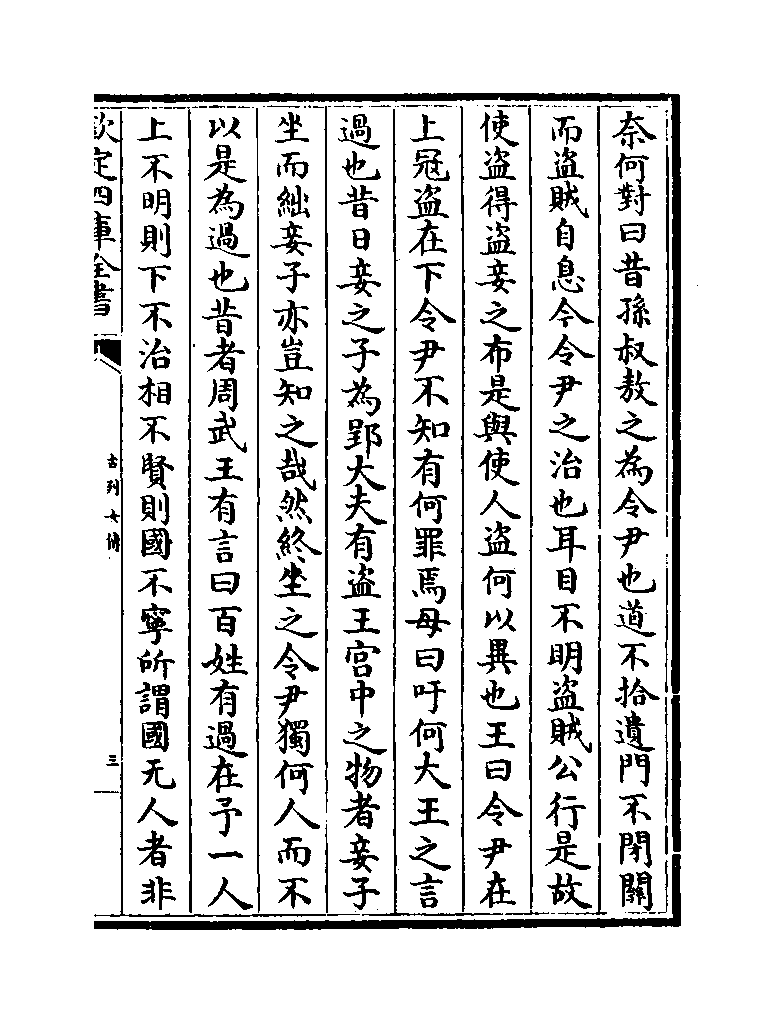 奈何對曰昔孫叔敖之為令尹也道不拾遺門不閉關
而盗賊自息今令尹之治也耳目不明盗賊公行是故
使盗得盗妾之布是與使人盗何以異也王曰令尹在
上冦盗在下令尹不知有何罪焉母曰吁何大王之言
過也昔日妾之子為郢大夫有盗王宫中之物者妾子
坐而絀妾子亦豈知之哉然終坐之令尹獨何人而不
以是為過也昔者周武王有言曰百姓有過在予一人
上不明則下不治相不賢則國不寧所謂國无人者非
欽定四庫全書
古列女傳
三